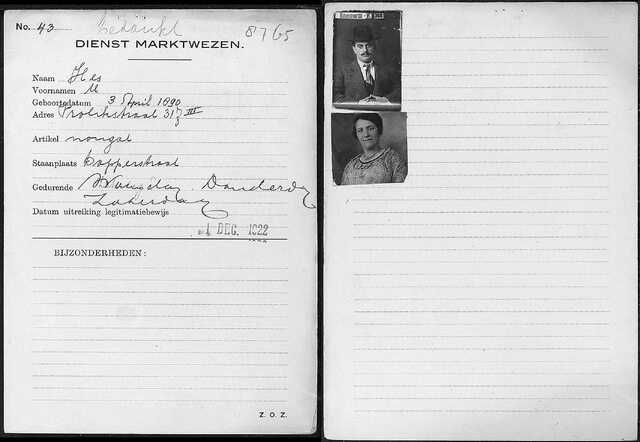 No. 43 bedankt 8765
DIENST MARKTWEZEN.
Naam Hes
Voornamen M
Geboortedatum 3 April 1890
Adres Prolikstraat 317 III
Artikel nougat
Staanplaats Dapperstraat
Gedurende Maandag Donderdag
Zaterdag
Datum uitreiking legitimatiebewijs
-1 DEC. 1922
BIJZONDERHEDEN:
Z. O. Z.